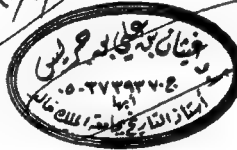 غيثان بن علي بن جريس
ج.٠٥٠٢٧٣٩٣٧٠
أبها
أستاذ التاريخ بجامعة الملك خالد